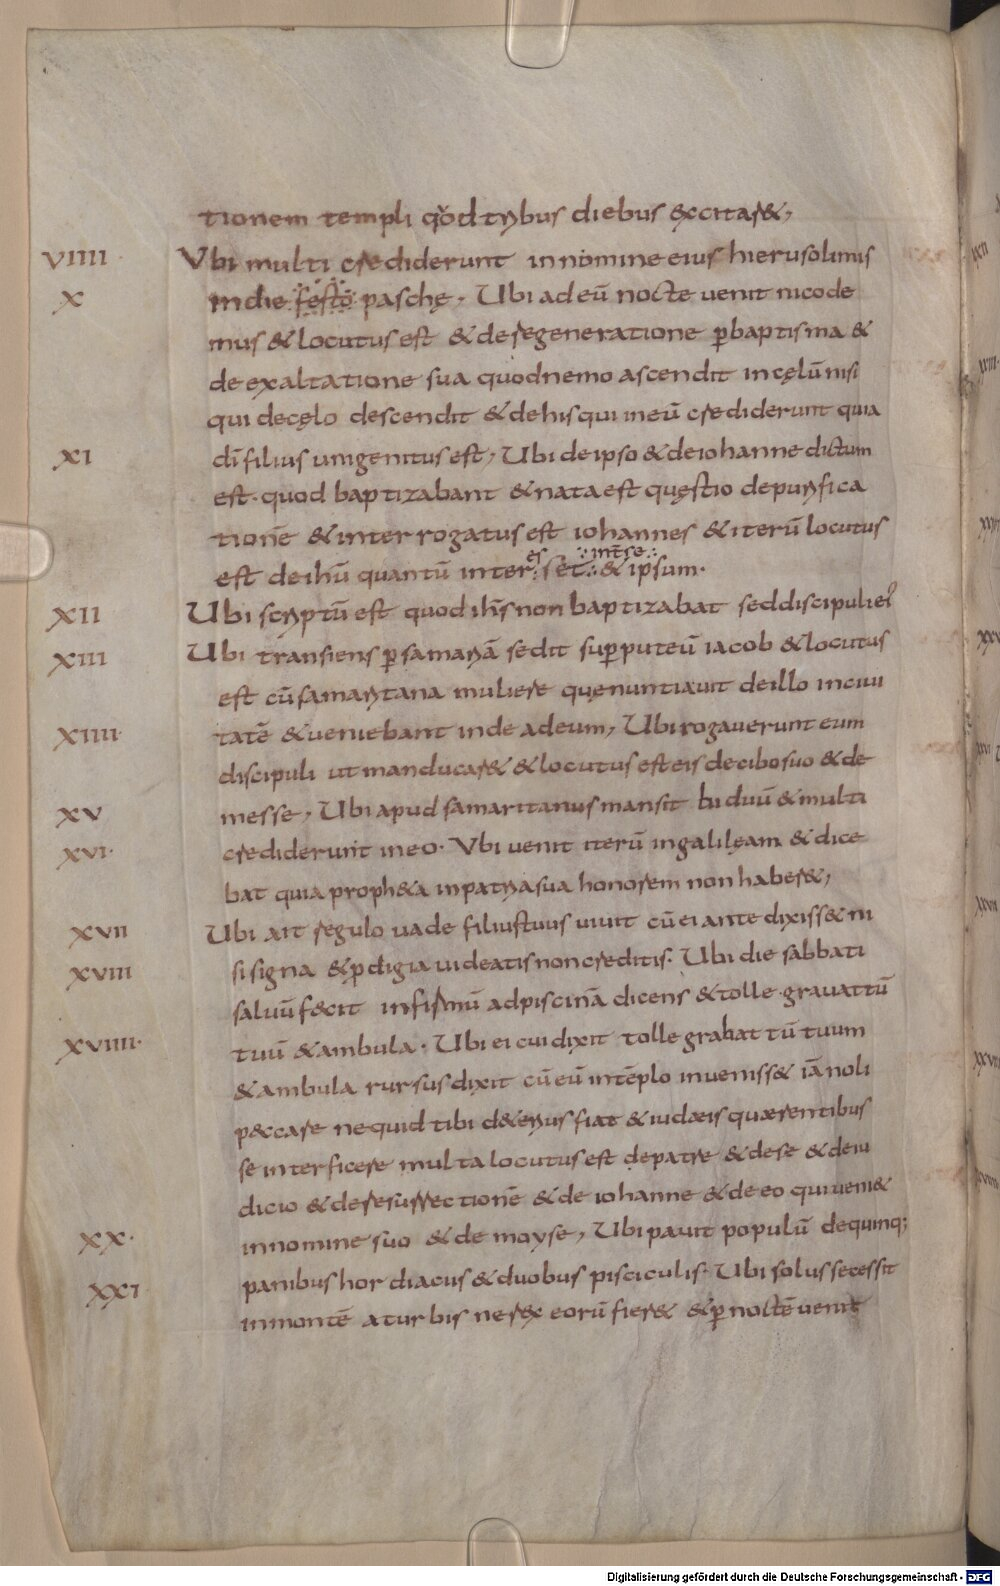 tionem templi quod tribus diebus excitar&,
VIIII Ubi multi crediderunt in nomine eius hierusolimis
X in die festo paschę. Ubi ad eū nocte uenit nicode
mus & locutus est & de regeneratione p̱ baptisma &
de exaltatione sua quod nemo ascendit in cęlū nisi
qui de cęlo descendit & de his qui in eū crediderunt quia
XI dī filius unigenitus est, Ubi de ipso & de iohanne dictum
est. quod baptizabant & nata est quęstio de purifica
tionē & interrogatus est iohannes & iterū locutus
est de ihū quantū inter es set int̄ se & ipsum.
XII Ubi scriptū est quod ihs̄ non baptizabat sed discipuli ei'
XIII Ubi transiens p̱ samariā sedit sup̱ puteū iacob & locutus
est cū samaritana muliere quę nuntiauit de illo in ciui
XIIII tatē & ueniebant inde ad eum, Ubi rogauerunt eum
discipuli ut manducar& & locutus est eis de cibo suo & de
XV messe, Ubi apud samaritanus mansit biduū & multi
XVI. crediderunt in eo. Ubi uenit iterū in galilęam & dice
bat quia proph&a in patria sua honorem non haber&,
XVII Ubi ait regulo uade filius tuus uiuit cū ei ante dixiss& ni
XVIII si signa & p̱digia uideatis non creditis. Ubi die sabbati
saluū fecit infirmū ad piscinā dicens & tolle grauattū
XVIIII. tuū & ambula. Ubi ei cui dixit tolle grabattū tuum
& ambula rursus dixit cū eū in tēplo inueniss& iā noli
p&care ne quid tibi d&erius fiat & iudæis quærentibus
se interficere multa locutus est de patre & de se & de iu
dicio & de resurrectionē & de iohanne & de eo qui ueni&
XX. in nomine suo & de moyse, Ubi pauit populū de quinq;
XXI panibus hordiacus & duobus pisciculis. Ubi solus secessit
in montē a turbis ne rex eorū fier& & p̱ noctē uenit
Digitalisierung gefördert durch die Deutsche Forschungsgemeinschaft - DFG